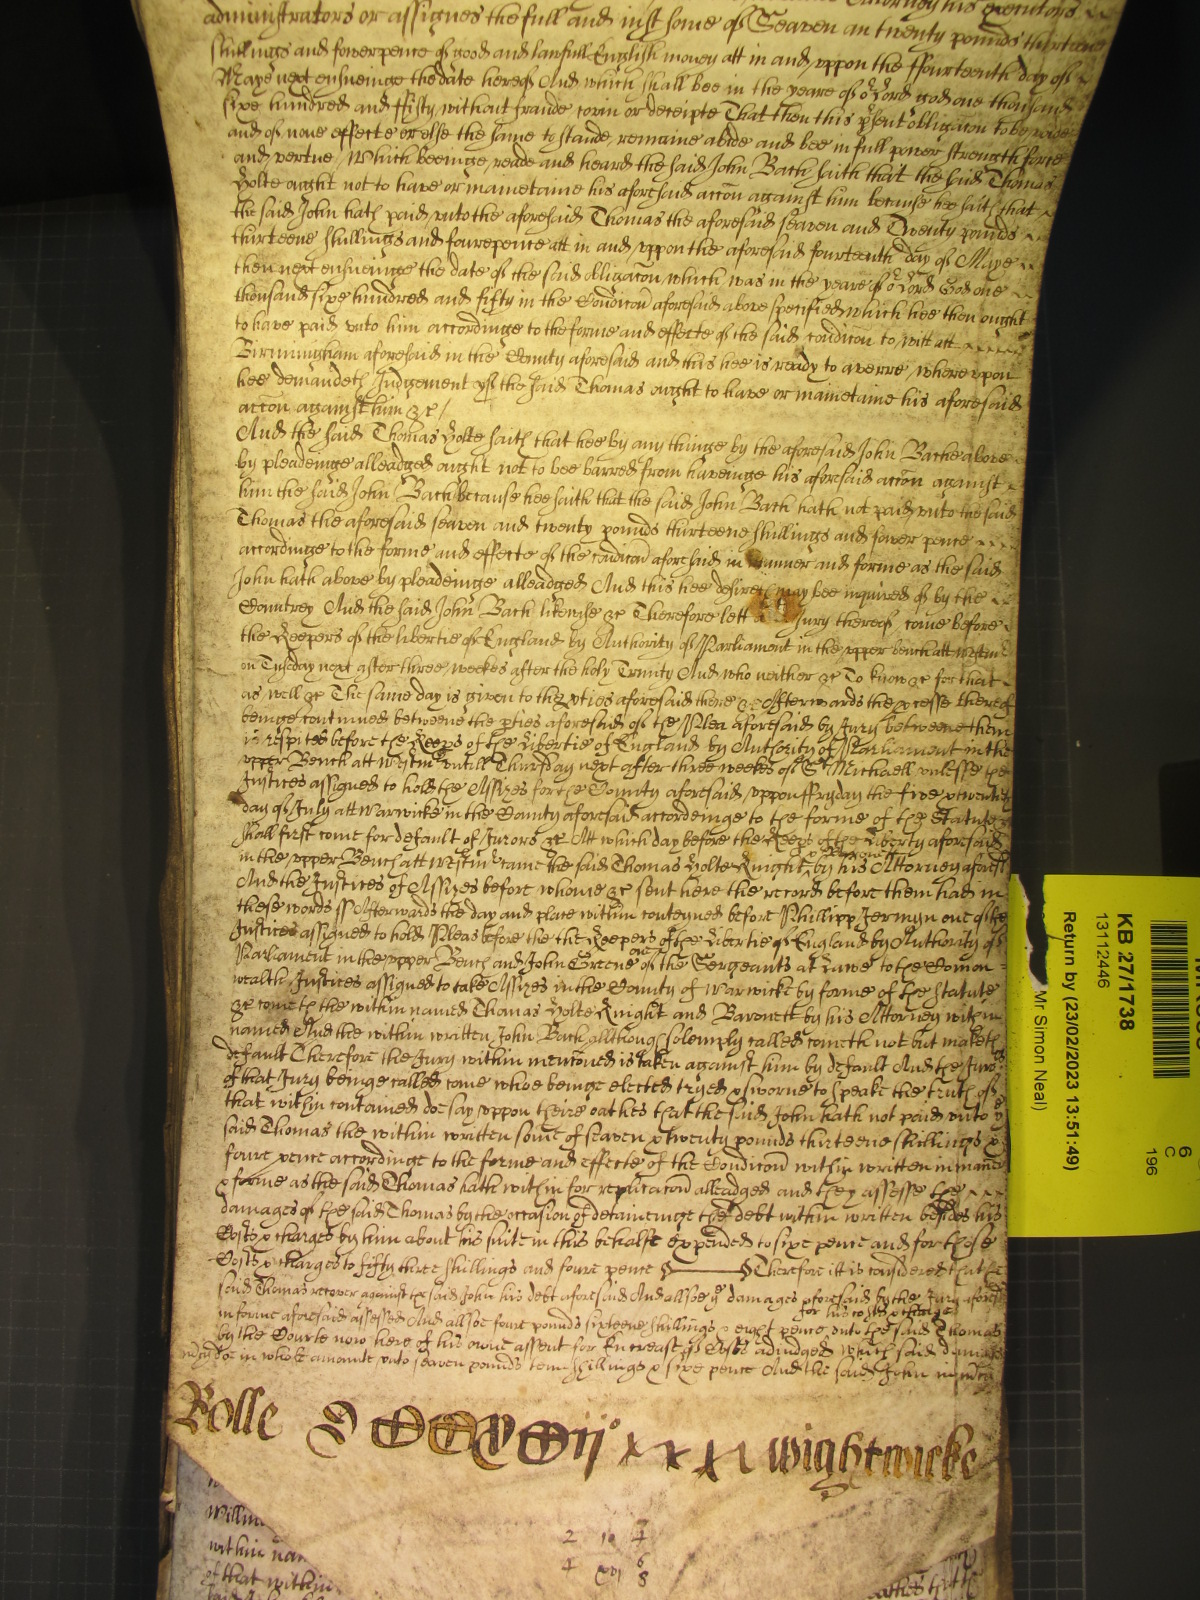 administrators or assignes the full and just some of Seaven an twenty pounds thirteene
shillings and fowerpence of good and lawfull English money att in and uppon the ffourteenth day of
Maye next ensueinge the date hereof And which shall bee in the yeare of or Lord god one thousand
sixe hundred and ffifty without fraude covin or deceipte That then this psent obligacon to be voide
and of none effecte or else the same to stande remaine abide and bee in full power strength force
and vertue, Which beeinge reade and heard the said John Bach saith that the said Thomas
Holte ought not to have or mainetaine his aforesaid accon against him because hee saith that
the said John hath paid unto the aforesaid Thomas the aforesaid seaven and Twenty pounds
thirteene shillings and fourepence att in and uppon the aforesaid fourteenth day of Maye
then next ensueinge the date of the said obligacon which was in the yeare of or Lord God one
thousand sixe hundred and fifty in the Condicon aforesaid above specified which hee then ought
to have paid unto him accordinge to the forme and effecte of the said condicon to witt att
Birmingham aforesaid in the County aforesaid and this hee is ready to averre, where upon
hee demandeth Judgement yf the said Thomas ought to have or mainetaine his aforesaid
accon against him &c /
And the said Thomas Holte saith that hee by any thinge by the aforesaid John Bache above
by pleadeinge alleadged ought not to bee barred from haveinge his aforesaid accon against
him the said John Bach because hee saith that the said John Bach hath not paid unto the said
Thomas the aforesaid seaven and twenty pounds thirteene shillings and fower pence
accordinge to the forme and effecte of the condicon aforesaid in manner and forme as the said
John hath above by pleadeinge alleadged And this hee desireth may bee inquired of by the
Countrey And the said John Bach likewise &c Therefore lett a Jury thereof come before
the Keepers of the libertie of England by Authority of Parliament in the upper bench att Westm
on Tuesday next after three weekes after the holy Trinity And who neither &c To know &c for that
as well &c The same day is given to the pties aforesaid there &c Afterwards the pcesse thereof
beinge continued betweene the pties aforesaid of the Plea aforesaid by Jury betweene them
is respited before the Keeps of the Libertie of England by Authority of Parliament in the
upper Bench att Westm untill Thursday next after three weekes of St Michaell unlesse the
Justices assigned to hold the Assizes for the County aforesaid, uppon ffryday the five & twentith
day of July att Warwicke in the County aforesaid accordeinge to the forme of the Statute
shall first come for default of Jurors &c Att which day before the Keeps of the Liberty aforesaid
in the upper Bench att Westm came the said Thomas Holte Knight & Baronett by his Attorney aforesd
And the Justices of Assizes before whome &c sent here the record before them had in
these words ss Afterwards the day and place within conteyned before Phillipp Jermyn one of the
Justices assigned to hold Pleas before the the Keepers of the Libertie of England by Authority of
Parliament in the upper Bench and John Greene one of the Sergeants at Lawe to the Comon=
wealth Justices assigned to take Assizes in the County of Warwicke by forme of the Statute
&c cometh the within named Thomas Holte Knight and Baronett by his Attorney within
named And the within written John Bach allthoug solemply called cometh not but maketh
default Therefore the Jury within menconed is taken against him by default And the Juro
of that Jury beinge called come whoe beinge elected tryed & sworne to speake the truth of
that within contained doe say uppon theire oathes that the said John hath not paid unto ye
said Thomas the within written some of seaven & twenty pounds thirteene shillings &
foure pence accordinge to the forme and effecte of the Condicon within written in maner
& forme as the said Thomas hath within for replicacon alleadged and they assesse the
damages of the said Thomas by the occasion of detaineinge the debt within written besides his
Costs & charges by him about his suite in this behalfe expended to sixe pence and for those
Costs & charges to fifty three shillings and foure pence Therefore itt is considered that the
said Thomas recover against the said John his debt aforesaid And allsoe ye damages aforesaid by the Jury aforesd
in forme aforesaid assessed And allsoe foure pounds sixteene shillings & eight pence unto the said Thomas for his costs & charges
by the Courte now here of his owne assent for Encrease of Costs adiudged which said damages
in whole amounte unto seaven pounds tenn shillings & sixe pence And the said John in mercy
Rolle xxxi Wightwicke
2 10 4
4 xvi 8
within nam
of that within
KB 27/1738
13112446
Return by (23/02/2023 13:51:49)
Mr Simon Neal)
6
C
196